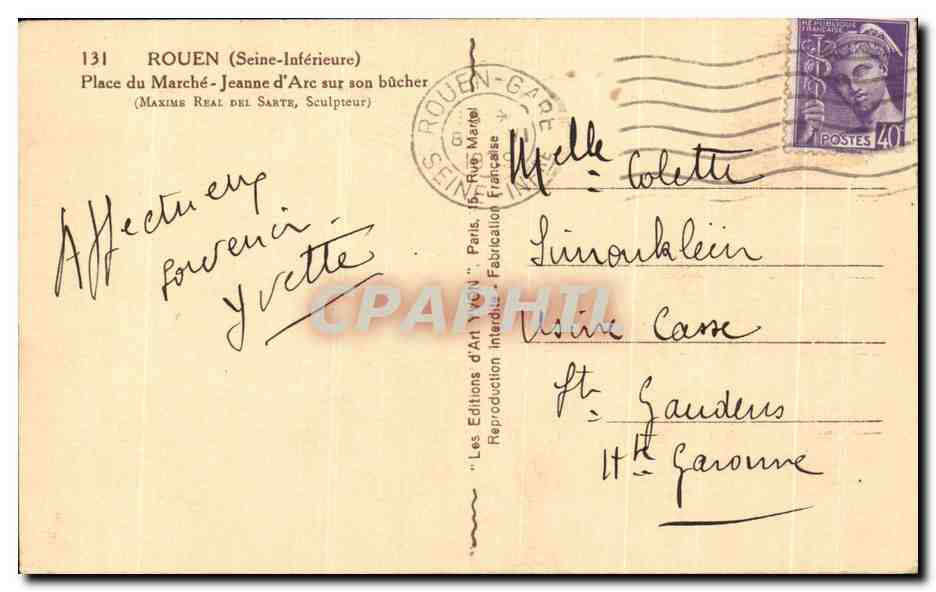 131 ROUEN (Seine-Inférieure)
Place du Marché - Jeanne d'Arc sur son bûcher
(MAXIME REAL DEL SARTE, Sculpteur)
Affectueux
souvenir.
Yvette
"Les Editions d'Art YVON", Paris, 15, Rue Martel
Reproduction Interdite - Fabrication Française
ROUEN-GARE
SEINE INFRE
RÉPUBLIQUE
FRANÇAISE
POSTES 40c
Melle Colette
Simonklein
Usine Casse
St Gaudens
Hte Garonne
CPAPHIL